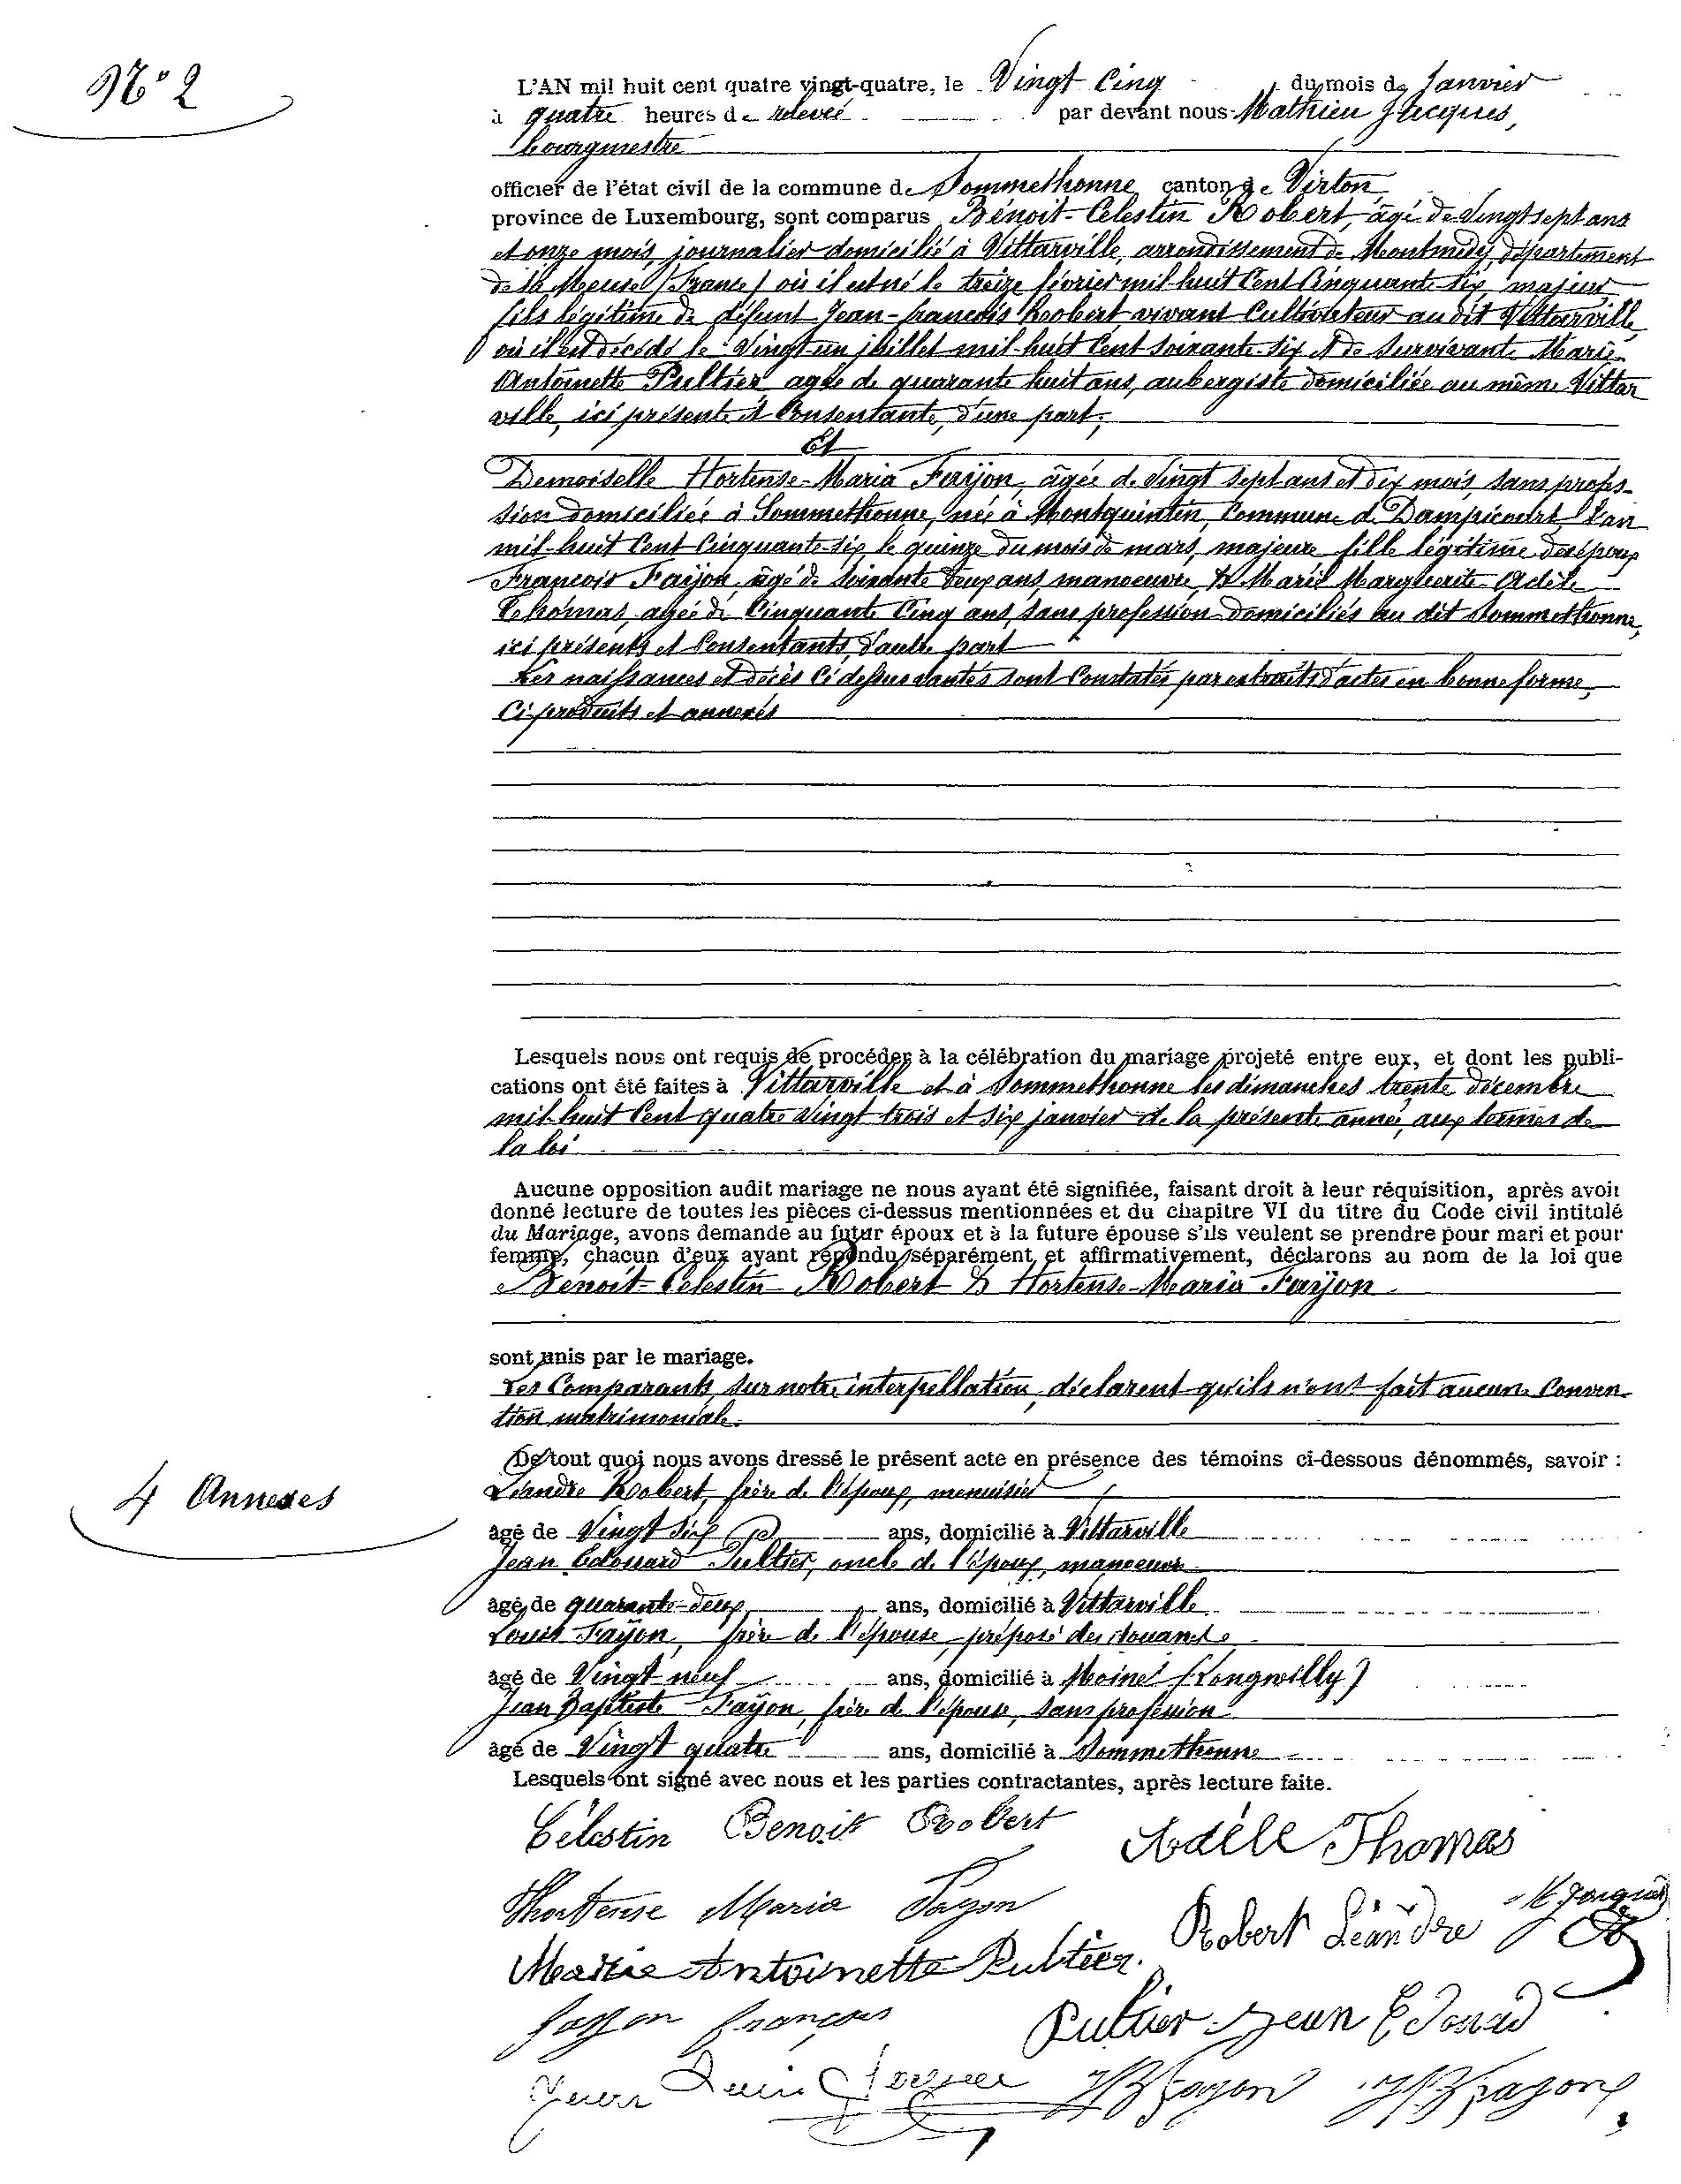 N° 2
L'AN mil huit cent quatre vingt-quatre, le Vingt Cinq du mois de Janvier
à quatre heures de relevée par devant nous Mathieu Jacques,
bourgmestre
officier de l'état civil de la commune de Sommethonne canton de Virton
province de Luxembourg, sont comparus Bénoit-Célestin Robert, âgé de Vingt sept ans
et onze mois, journalier domicilié à Vittarville, arrondissement de Montmédy, département
de la Meuse (France) où il est né le treize février mil huit Cent Cinquante six, majeur
fils légitime de défunt Jean-françois Robert vivant Cultivateur au dit Vittarville
où il est décédé le Vingt un juillet mil huit Cent soixante-six et de survivante Marie
Antoinette Pultier agée de quarante huit ans, aubergiste domiciliée au même Vittar
ville, ici présente et Consentante, d'une part,
Et
Demoiselle Hortense-Maria Faÿon, âgée de Vingt sept ans et dix mois, sans profes-
sion domiciliée à Sommethonne, née à Montquintin, Commune de Dampicourt l'an
mil-huit Cent Cinquante-six le quinze du mois de mars, majeure fille légitime des époux
François Faÿon, âgé de soixante deux ans, manoeuvre, & Marie Marguerite-Adèle
Thomas, agée de Cinquante Cinq ans, sans profession domiciliés au dit Sommethonne,
ici présents et Consentants, d'autre part
Les naissances et décès Ci dessus vantés sont Constatés par extraits d'actes en bonne forme,
Ci produits et annexés
Lesquels nous ont requis de procéder à la célébration du mariage projeté entre eux, et dont les publi-
cations ont été faites à Vittarville et à Sommethonne les dimanches trente décembre
mil-huit Cent quatre Vingt trois et six janvier de la présente année, aux termes de
la loi
Aucune opposition audit mariage ne nous ayant été signifiée, faisant droit à leur réquisition, après avoir
donné lecture de toutes les pièces ci-dessus mentionnées et du chapitre VI du titre du Code civil intitulé
du Mariage, avons demande au futur époux et à la future épouse s'ils veulent se prendre pour mari et pour
femme, chacun d'eux ayant répondu séparément et affirmativement, déclarons au nom de la loi que
Bénoit-Célestin Robert & Hortense-Maria Faÿon
sont unis par le mariage.
Les Comparants, sur notre interpellation, déclarent qu'ils n'ont fait aucune Conven-
tion matrimoniale.
De tout quoi nous avons dressé le présent acte en présence des témoins ci-dessous dénommés, savoir :
Léandre Robert, frère de l'époux, menuisier
4 Annexes
âgé de Vingt six ans, domicilié à Vittarville
Jean Edouard Pultier, oncle de l'époux, manoeuvre
âgé de quarante-deux ans, domicilié à Vittarville
Louis Faÿon, frère de l'épouse, préposé des douanes
âgé de Vingt neuf ans, domicilié à Moinet (Longwilly)
Jean Baptiste Faÿon, frère de l'épouse, sans profession
âgé de Vingt quatre ans, domicilié à Sommethonne
Lesquels ont signé avec nous et les parties contractantes, après lecture faite.
Célestin Benoit Robert Adèle Thomas
Hortense Maria Fayon M Jacques
Marie Antoinette Pultier. Robert Léandre
fayon françois Pultier Jean Edouad
Louis JB fayon JB fayon